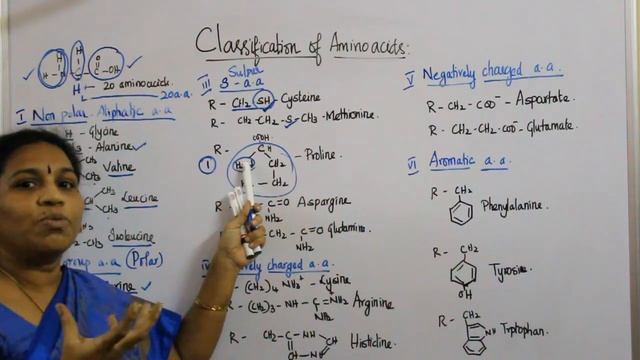 Classification of Aminoacids:
20 aminoacids.
20a.a.
I Non polar Aliphatic a.a
H - Glycine
Alanine ✓
Valine
Leucine
Isoleucine
group a.a (Polar)
III Sulpur
S - a.a
R - CH2 (SH) - Cysteine
R - CH2-CH2-S-CH3 - Methionine.
COOH
R -
C H
① H2
CH2
- Proline.
- CH2
R
C=O - Aspargine
NH2
CH2 - C=O - Glutamine.
NH2
IV
vely charged a.a.
R - (CH2)4 NH3+ - Lysine
R - (CH2)3 - NH - C=NH2 - Arginine
NH2
R - CH2-C - NH
Histidine.
V Negatively charged a.a.
R - CH2 - COO- - Aspartate
R - CH2-CH2-COO- - Glutamate.
VI Aromatic a.a.
R - CH2
Phenylalanine.
R - CH2
Tyrosine.
OH
R - CH2
NH
Trptophan.